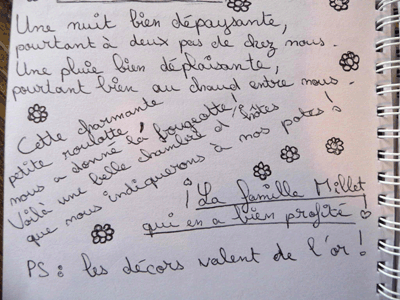 Une nuit bien dépaysante,
pourtant à deux pas de chez nous.
Une pluie bien déplaisante,
pourtant bien au chaud entre nous.
Cette charmante
petite roulotte,
nous a donné la bougeotte !
Voilà une belle chambre d'hôtes
que nous indiquerons à nos potes !
¡ La famille Millet
qui en a bien profité !
PS : les décors valent de l'or !